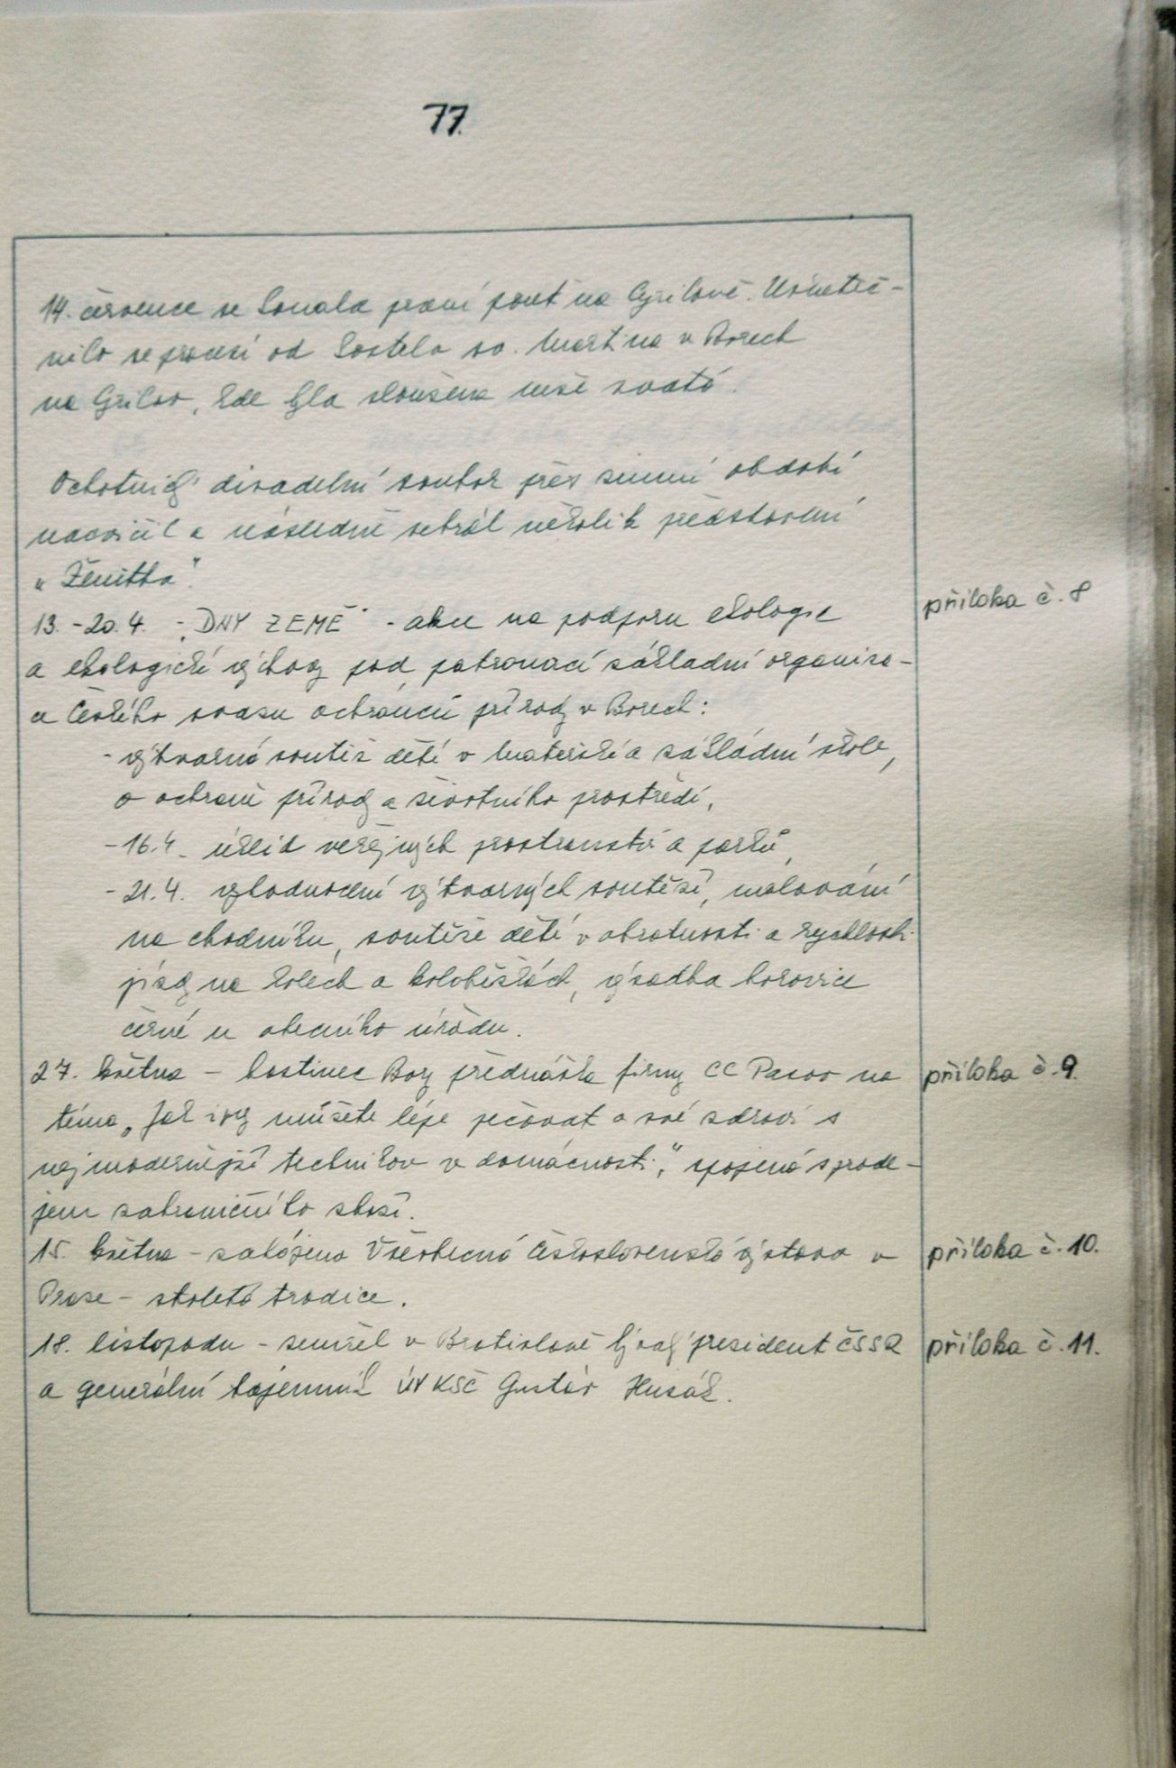 77.
14. července se konala první pouť na Cyrilově. Uskuteč-
nilo se procesí od kostela sv. Martina v Borech
na Cyrilov, kde byla sloužena mše svatá.
Ochotnický divadelní soubor přes zimní období
nacvičil a následně sehrál několik představení
„Ženitba".
příloha č. 8
13. - 20. 4. - „DNY ZEMĚ" - akce na podporu ekologie
a ekologické výchovy pod patronací základní organiza-
ce Českého svazu ochránců přírody v Borech:
- výtvarná soutěž dětí v mateřské a základní škole,
o ochraně přírody a životního prostředí,
- 16. 4. úklid veřejných prostranství a parků,
- 21. 4. vyhodnocení výtvarných soutěží, malování
na chodníku, soutěže dětí v obratnosti a rychlosti
jízdy na kolech a koloběžkách, výsadba borovice
černé u obecního úřadu.
27. května - hostinec Bory přednáška firmy CC Pacov na
příloha č. 9.
téma „Jak i vy můžete lépe pečovat o své zdraví s
nejmodernější technikou v domácnosti", spojená s prode-
jem zahraničního zboží.
15. května - zahájena Všeobecná československá výstava v
příloha č. 10.
Praze - stoletá tradice.
18. listopadu - zemřel v Bratislavě bývalý president ČSSR
příloha č. 11.
a generální tajemník ÚV KSČ Gustáv Husák.